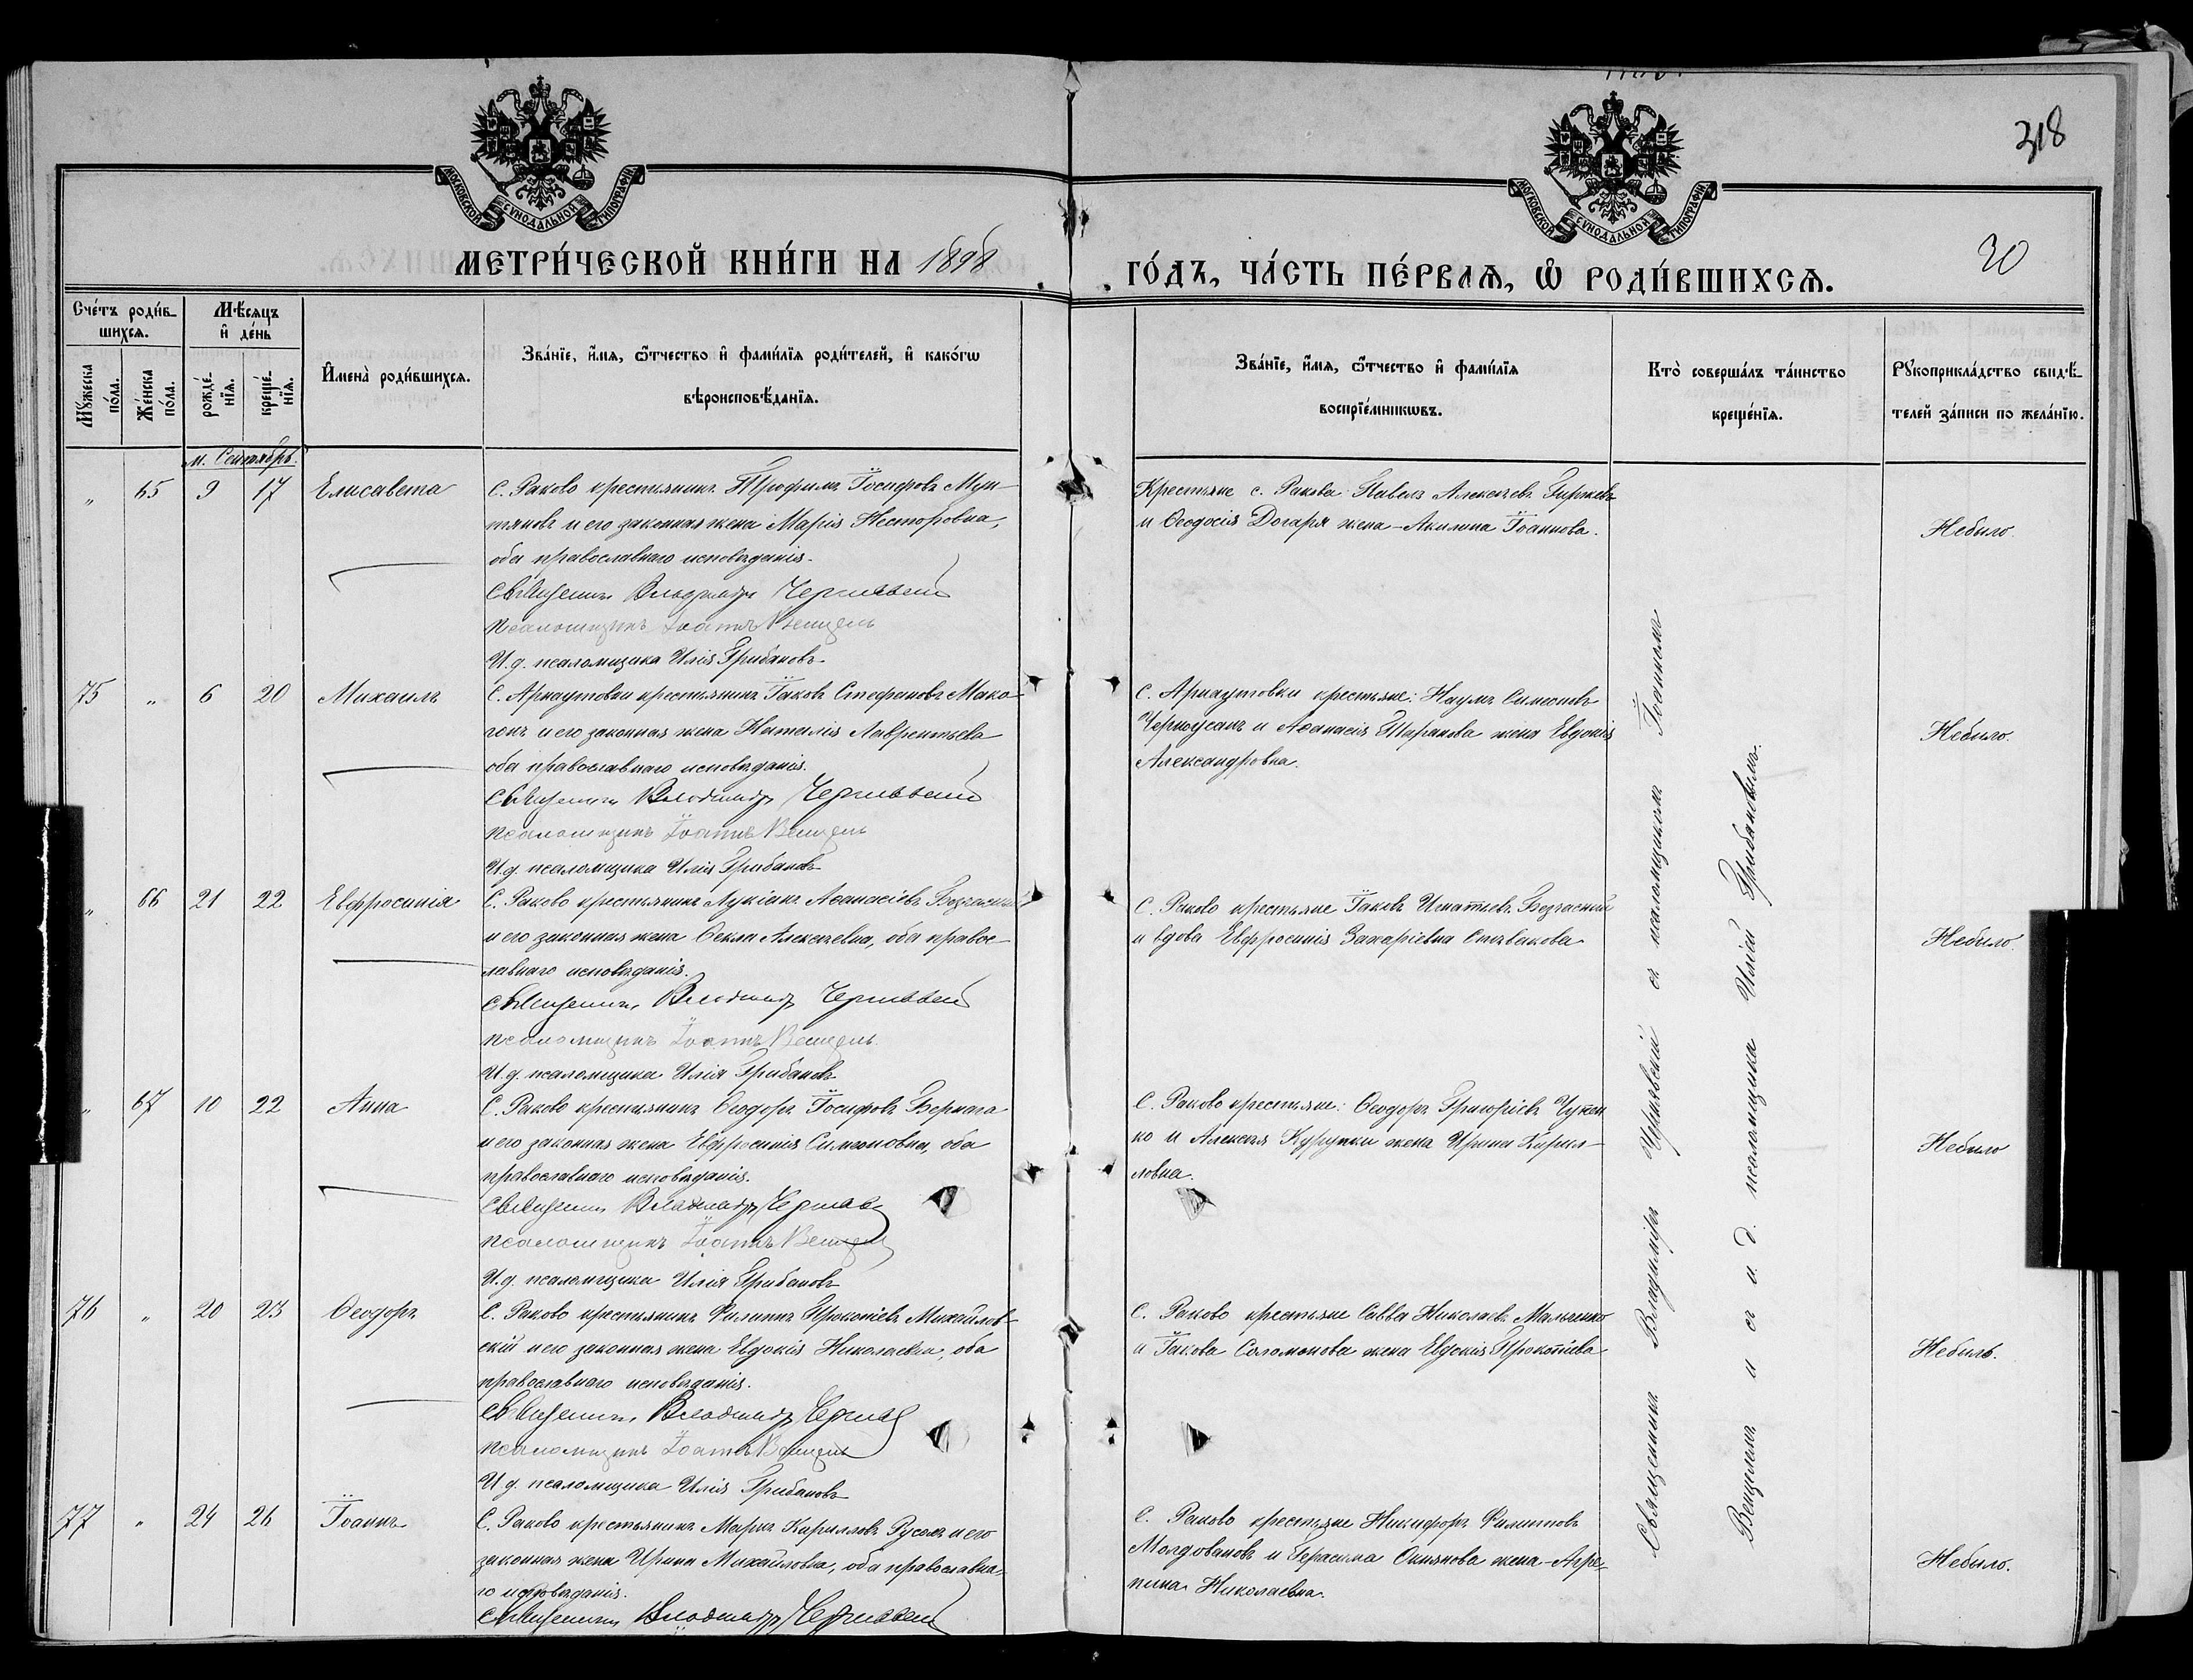 318
МОСКОВСКОЙ СѴНОДАЛЬНОЙ ТИПОГРАФІИ
МОСКОВСКОЙ СѴНОДАЛЬНОЙ ТИПОГРАФІИ
30
МЕТРИ́ЧЕСКОЙ КНИ́ГИ НА 1898
ГО́ДЪ, ЧА́СТЬ ПЕ́РВАѦ, Ѽ РОДИ́ВШИХСѦ.
Сче́тъ роди́в-
шихсѧ.
Мѣ́сѧцъ
и҆ де́нь
Мꙋ́жеска
по́ла.
Же́нска
по́ла.
рожде́-
нїѧ.
креще́-
нїѧ.
И҆мена̀ роди́вшихсѧ.
Зва́нїе, и҆́мѧ, ѻ҆́тчество и҆ фами́лїѧ роди́телей, и҆ како́гѡ
вѣроисповѣ́данїѧ.
Зва́нїе, и҆́мѧ, ѻ҆́тчество и҆ фами́лїѧ
воспрїе́мникѡвъ.
Кто̀ соверша́лъ та́инство
креще́нїѧ.
Рꙋкоприкла́дство свидѣ́-
телей за́писи по жела́нїю.
м. Сентябрь.
" 65 9 17 Елисавета
С. Раково крестьянинъ Трофимъ Іосифовъ Мун-
тяновъ и его законная жена Марія Несторовна,
оба православнаго исповѣданія.
Священникъ Владиміръ
псаломщикъ Іоаннъ Венцель
И. д. псаломщика Илія Грибановъ
Крестьяне с. Ракова: Павелъ Алексѣевъ
и Ѳеодосія Догаря жена - Акилина Іоаннова.
Небыло.
75 " 6 20 Михаилъ
С. Арнаутовки крестьянинъ Іаковъ Стефановъ Мако-
гонъ и его законная жена Наталія Лаврентьева
оба православнаго исповѣданія.
Священникъ Владиміръ
псаломщикъ Іоаннъ Венцель
И. д. псаломщика Илія Грибановъ
С. Арнаутовки крестьяне: Наумъ Симеоновъ
Черноусанъ и Аѳанасія Таранова жена Евдокія
Александровна.
Небыло.
" 66 21 22 Евфросинія
С. Раково крестьянинъ Лукіанъ Аѳанасіевъ
и его законная жена Ѳекла Алексѣевна, оба правос-
лавнаго исповѣданія.
Священникъ Владиміръ
псаломщикъ Іоаннъ Венцель
И. д. псаломщика Илія Грибановъ
С. Раково крестьяне Іаковъ Игнатьевъ Безчасный
и вдова Евфросинія Захаріевна
Небыло.
" 67 10 22 Анна
С. Раково крестьянинъ Ѳеодоръ Іосифовъ Бернага
и его законная жена Евфросинія Симеоновна, оба
православнаго исповѣданія.
Священникъ Владиміръ
псаломщикъ Іоаннъ Венцель
И. д. псаломщика Илія Грибановъ
С. Раково крестьяне: Ѳеодоръ Григоріевъ Чужен-
ко и Алексѣя жена Ирина Кирил-
ловна.
Небыло
76 " 20 23 Ѳеодоръ
С. Раково крестьянинъ Филиппъ Прокопіевъ Михайлов-
скій и его законная жена Евдокія Николаевна, оба
православнаго исповѣданія.
Священникъ Владиміръ
псаломщикъ Іоаннъ Венцель
И. д. псаломщика Илія Грибановъ
С. Раково крестьяне Савва Николаевъ Мальченко
и Іакова Соломонова жена Евдокія Прокопіева
Небыло.
77 " 24 26 Іоаннъ
С. Раково крестьянинъ Маркъ Кирилловъ Русолъ и его
законная жена Ирина Михайловна, оба православна-
го исповѣданія.
Священникъ Владиміръ
С. Раково крестьяне Никифоръ Филипповъ
Молдовановъ и Герасима жена - Агре-
пина Николаевна.
Небыло.
Священникъ Владиміръ съ псаломщикомъ Іоанномъ
Венцелемъ и съ и. д. псаломщика Иліей Грибановымъ.